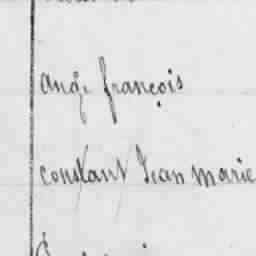 ange françois
constant Jean marie